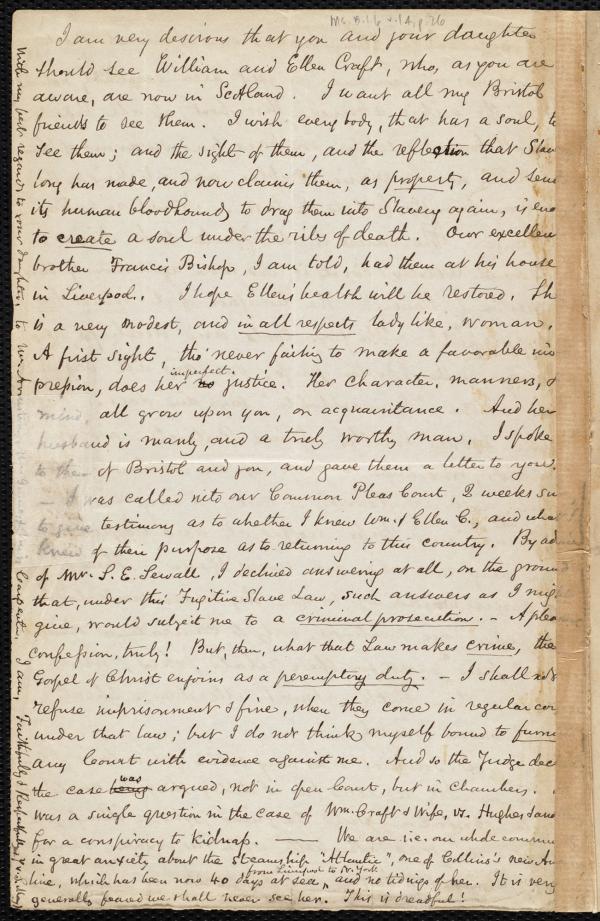 Ms. B.1.6 v.14, p.26
I am very desirous that you and your daughter
should see William and Ellen Craft, who, as you are
aware, are now in Scotland. I want all my Bristol
friends to see them. I wish everybody, that has a soul, to
see them; and the sight of them, and the reflection that Slav
long has made, and now claims them, as property, and send
its human bloodhounds to drag them into Slavery again, is eno
to create a soul under the ribs of death. Our excellen
brother Francis Bishop, I am told, had them at his house
in Liverpool. I hope Ellen's health will be restored. Sh
is a very modest, and in all respects lady like, woman.
A first sight, tho' never failing to make a favorable im
pression, does her no imperfect justice. Her character, manners, &
mind, all grow upon you, on acquaintance. And her
husband is manly, and a truly worthy man. I spoke
to them of Bristol and you, and gave them a letter to you.
- I was called into our Common Pleas Court, 2 weeks sin
to give testimony as to whether I knew Wm. & Ellen C., and what I
knew of their purpose as to returning to this country. By advice
of Mr. S. E. Sewall, I declined answering at all, on the ground
that, under this Fugitive Slave Law, such answers as I migh
give, would subject me to a criminal prosecution. - A pleas
confession, truly! But, then, what that Law makes crime, the
Gospel of Christ enjoins as a peremptory duty. - I shall not
refuse imprisonment & fine, when they come in regular cou
under that law; but I do not think myself bound to furni
any Court with evidence against me. And so the Judge dec
the case being was argued, not in open Court, but in Chambers.
was a single question in the case of Wm. Craft & Wife, vs. Hughes & an
for a conspiracy to kidnap. — We are i.e. our whole commun
in great anxiety about the Steamship "Atlantic", one of Collins's new Am
line, which has been now 40 days at sea, from Liverpool to N. York and no tidings of her. It is very
generally feared we shall never see her. This is dreadful!
With my best regards to your daughter, to Mr. Carpenter, I am, Faithfully & Respectfully